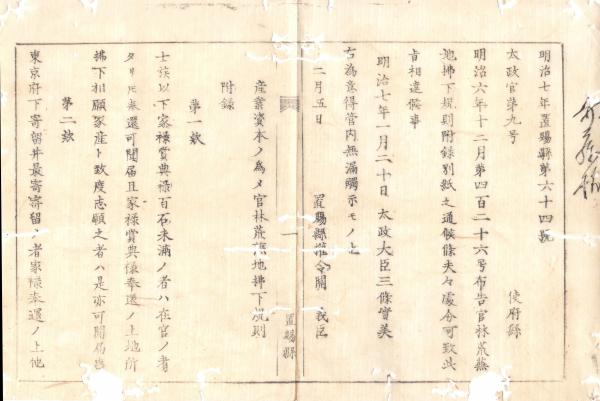 明治七年置賜縣第六十四號
太政官第九号
使府縣
明治六年十二月第四百二十六号布告官林荒蕪
地拂下規則附録別紙之通候條夫々處分可致此
旨相達候事
明治七年一月二十日 太政大臣三條實美
右為意得管内無漏觸示モノ也
二月五日 置賜縣権令關 義臣
置賜縣
産業資本ノ為メ官林荒蕪地拂下規則
附録
第一款
士族以下家禄賞典禄百石未満ノ者ハ在官ノ者
タリ𪜈奉還可聞届且家禄賞典禄奉還ノ上地所
拂下相願家産ト致度志願之者ハ是亦可聞届
第二款
東京府下寄留并最寄寄留ノ者家禄奉還ノ上他